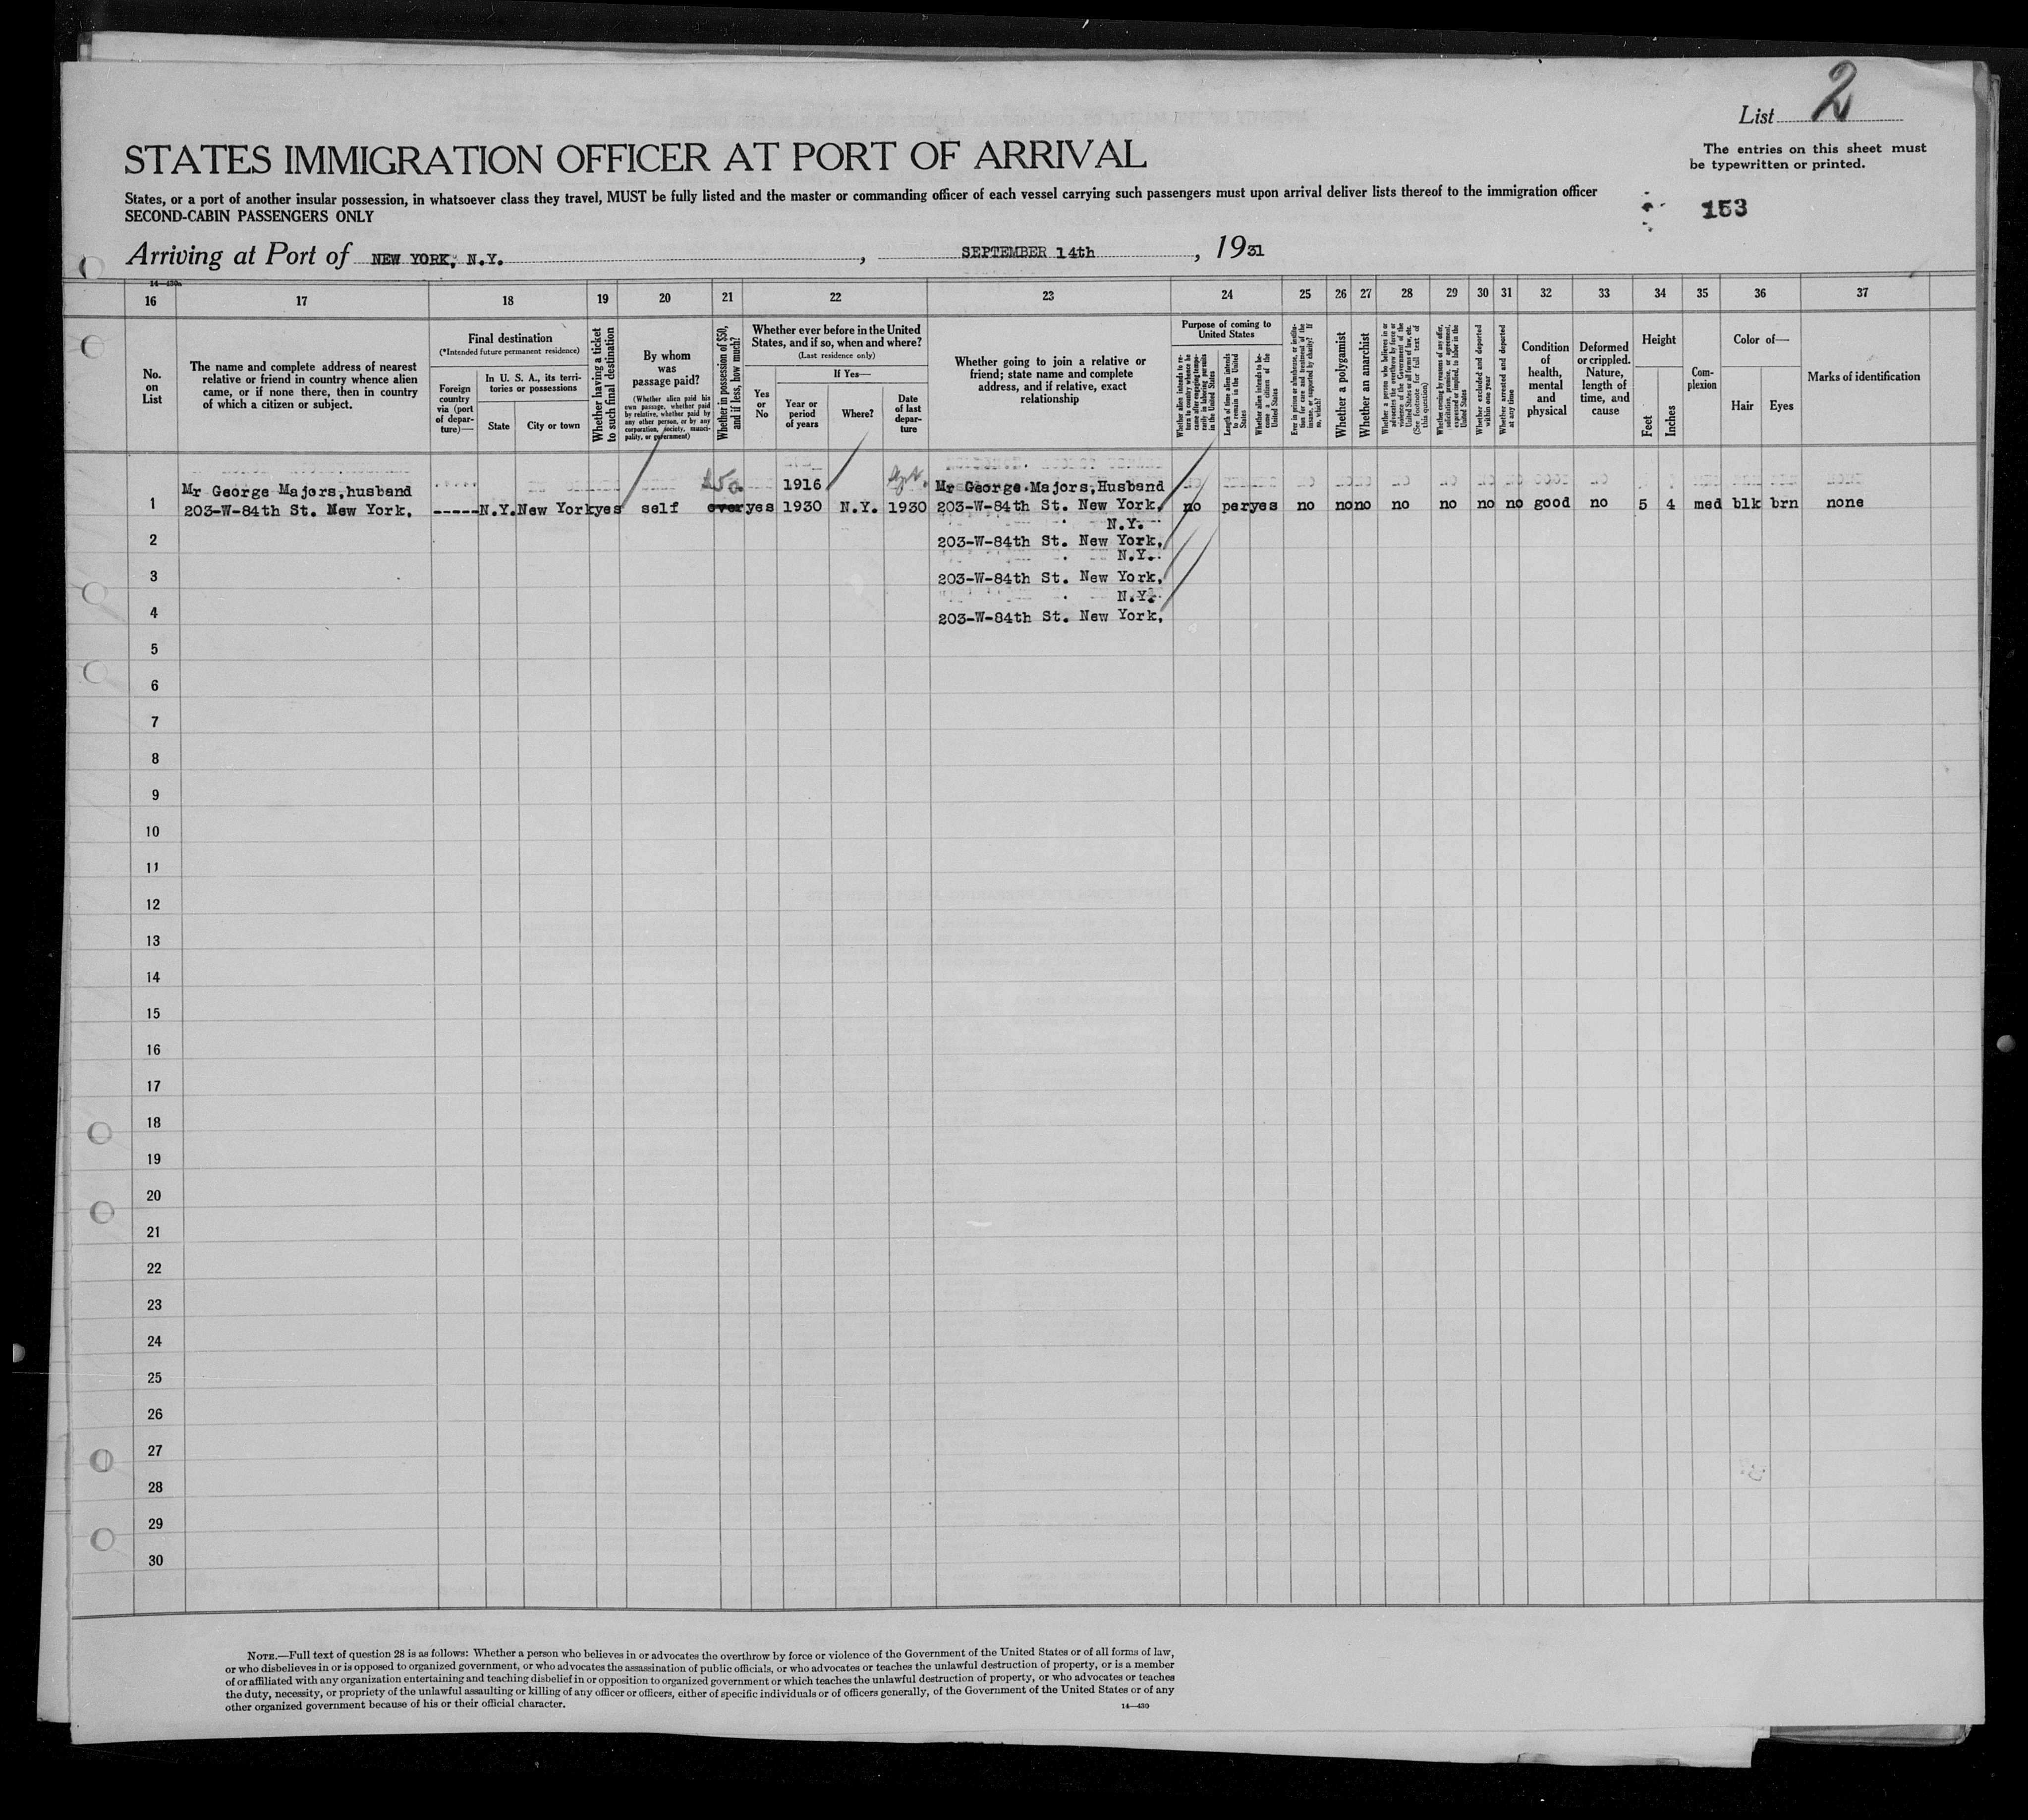 List 2
The entries on this sheet must
be typewritten or printed.
STATES IMMIGRATION OFFICER AT PORT OF ARRIVAL
States, or a port of another insular possession, in whatsoever class they travel, MUST be fully listed and the master or commanding officer of each vessel carrying such passengers must upon arrival deliver lists thereof to the immigration officer
SECOND-CABIN PASSENGERS ONLY
153
Arriving at Port of NEW YORK, N.Y. , SEPTEMBER 14th , 1931
14—430
16 17 18 19 20 21 22 23 24 25 26 27 28 29 30 31 32 33 34 35 36 37
No.
on
List
The name and complete address of nearest
relative or friend in country whence alien
came, or if none there, then in country
of which a citizen or subject.
Final destination
(*Intended future permanent residence)
Foreign
country
via (port
of depar-
ture)—
In U. S. A., its terri-
tories or possessions
State
City or town
Whether having a ticket
to such final destination
By whom
was
passage paid?
(Whether alien paid his
own passage, whether paid
by relative, whether paid by
any other person, or by any
corporation, society, munici-
pality, or government)
Whether in possession of $50,
and if less, how much?
Whether ever before in the United
States, and if so, when and where?
(Last residence only)
Yes
or
No
If Yes—
Year or
period
of years
Where?
Date
of last
depar-
ture
Whether going to join a relative or
friend; state name and complete
address, and if relative, exact
relationship
Purpose of coming to
United States
Whether alien intends to re-
turn to country whence he
came after engaging tempo-
rarily in laboring pursuits
in the United States
Length of time alien intends
to remain in the United
States
Whether alien intends to be-
come a citizen of the
United States
Ever in prison or almshouse, or institu-
tion for care and treatment of the
insane, or supported by charity? If
so, which?
Whether a polygamist
Whether an anarchist
Whether a person who believes in or
advocates the overthrow by force or
violence of the Government of the
United States or all forms of law, etc.
(See footnote for full text of
this question)
Whether coming by reason of any offer,
solicitation, promise, or agreement,
expressed or implied, to labor in the
United States
Whether excluded and deported
within one year
Whether arrested and deported
at any time
Condition
of
health,
mental
and
physical
Deformed
or crippled.
Nature,
length of
time, and
cause
Height
Feet
Inches
Com-
plexion
Color of—
Hair
Eyes
Marks of identification
Mr George Majors,husband $50 1916 Mr George Majors,Husband
1 203-W-84th St. New York, -----N.Y.New York yes self over yes 1930 N.Y. 1930 203-W-84th St. New York, no per yes no no no no no no no good no 5 4 med blk brn none
N.Y.
2 203-W-84th St. New York,
N.Y.
3 203-W-84th St. New York,
N.Y.
4 203-W-84th St. New York,
5
6
7
8
9
10
11
12
13
14
15
16
17
18
19
20
21
22
23
24
25
26
27
28
29
30
NOTE.—Full text of question 28 is as follows: Whether a person who believes in or advocates the overthrow by force or violence of the Government of the United States or of all forms of law,
or who disbelieves in or is opposed to organized government, or who advocates the assassination of public officials, or who advocates or teaches the unlawful destruction of property, or is a member
of or affiliated with any organization entertaining and teaching disbelief in or opposition to organized government or which teaches the unlawful destruction of property, or who advocates or teaches
the duty, necessity, or propriety of the unlawful assaulting or killing of any officer or officers, either of specific individuals or of officers generally, of the Government of the United States or of any
other organized government because of his or their official character.
14—430